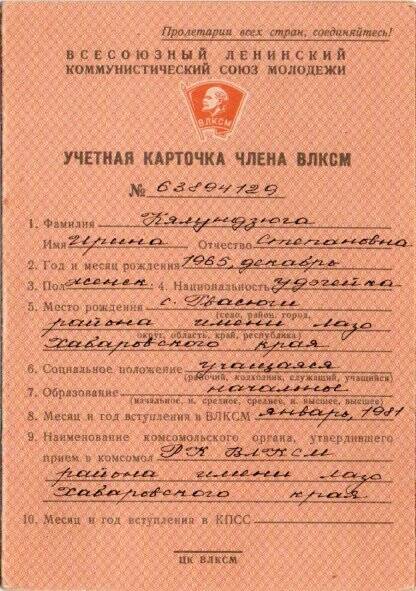 Пролетарии всех стран, соединяйтесь!
ВСЕСОЮЗНЫЙ ЛЕНИНСКИЙ
КОММУНИСТИЧЕСКИЙ СОЮЗ МОЛОДЕЖИ
ВЛКСМ
УЧЕТНАЯ КАРТОЧКА ЧЛЕНА ВЛКСМ
№ 63894129
1. Фамилия Кялундзюга
Имя Ирина Отчество Степановна
2. Год и месяц рождения 1965, декабрь
3. Пол женск. 4. Национальность удэгейка
5. Место рождения с. Гвасюги
(село, район, город,
района имени Лазо
округ, область, край, республика)
Хабаровского края
6. Социальное положение учащаяся
(рабочий, колхозник, служащий, учащийся)
7. Образование начальное
(начальное, н. среднее, среднее, н. высшее, высшее)
8. Месяц и год вступления в ВЛКСМ январь, 1981
9. Наименование комсомольского органа, утвердившего
прием в комсомол РК ВЛКСМ
района имени Лазо
Хабаровского края
10. Месяц и год вступления в КПСС
ЦК ВЛКСМ